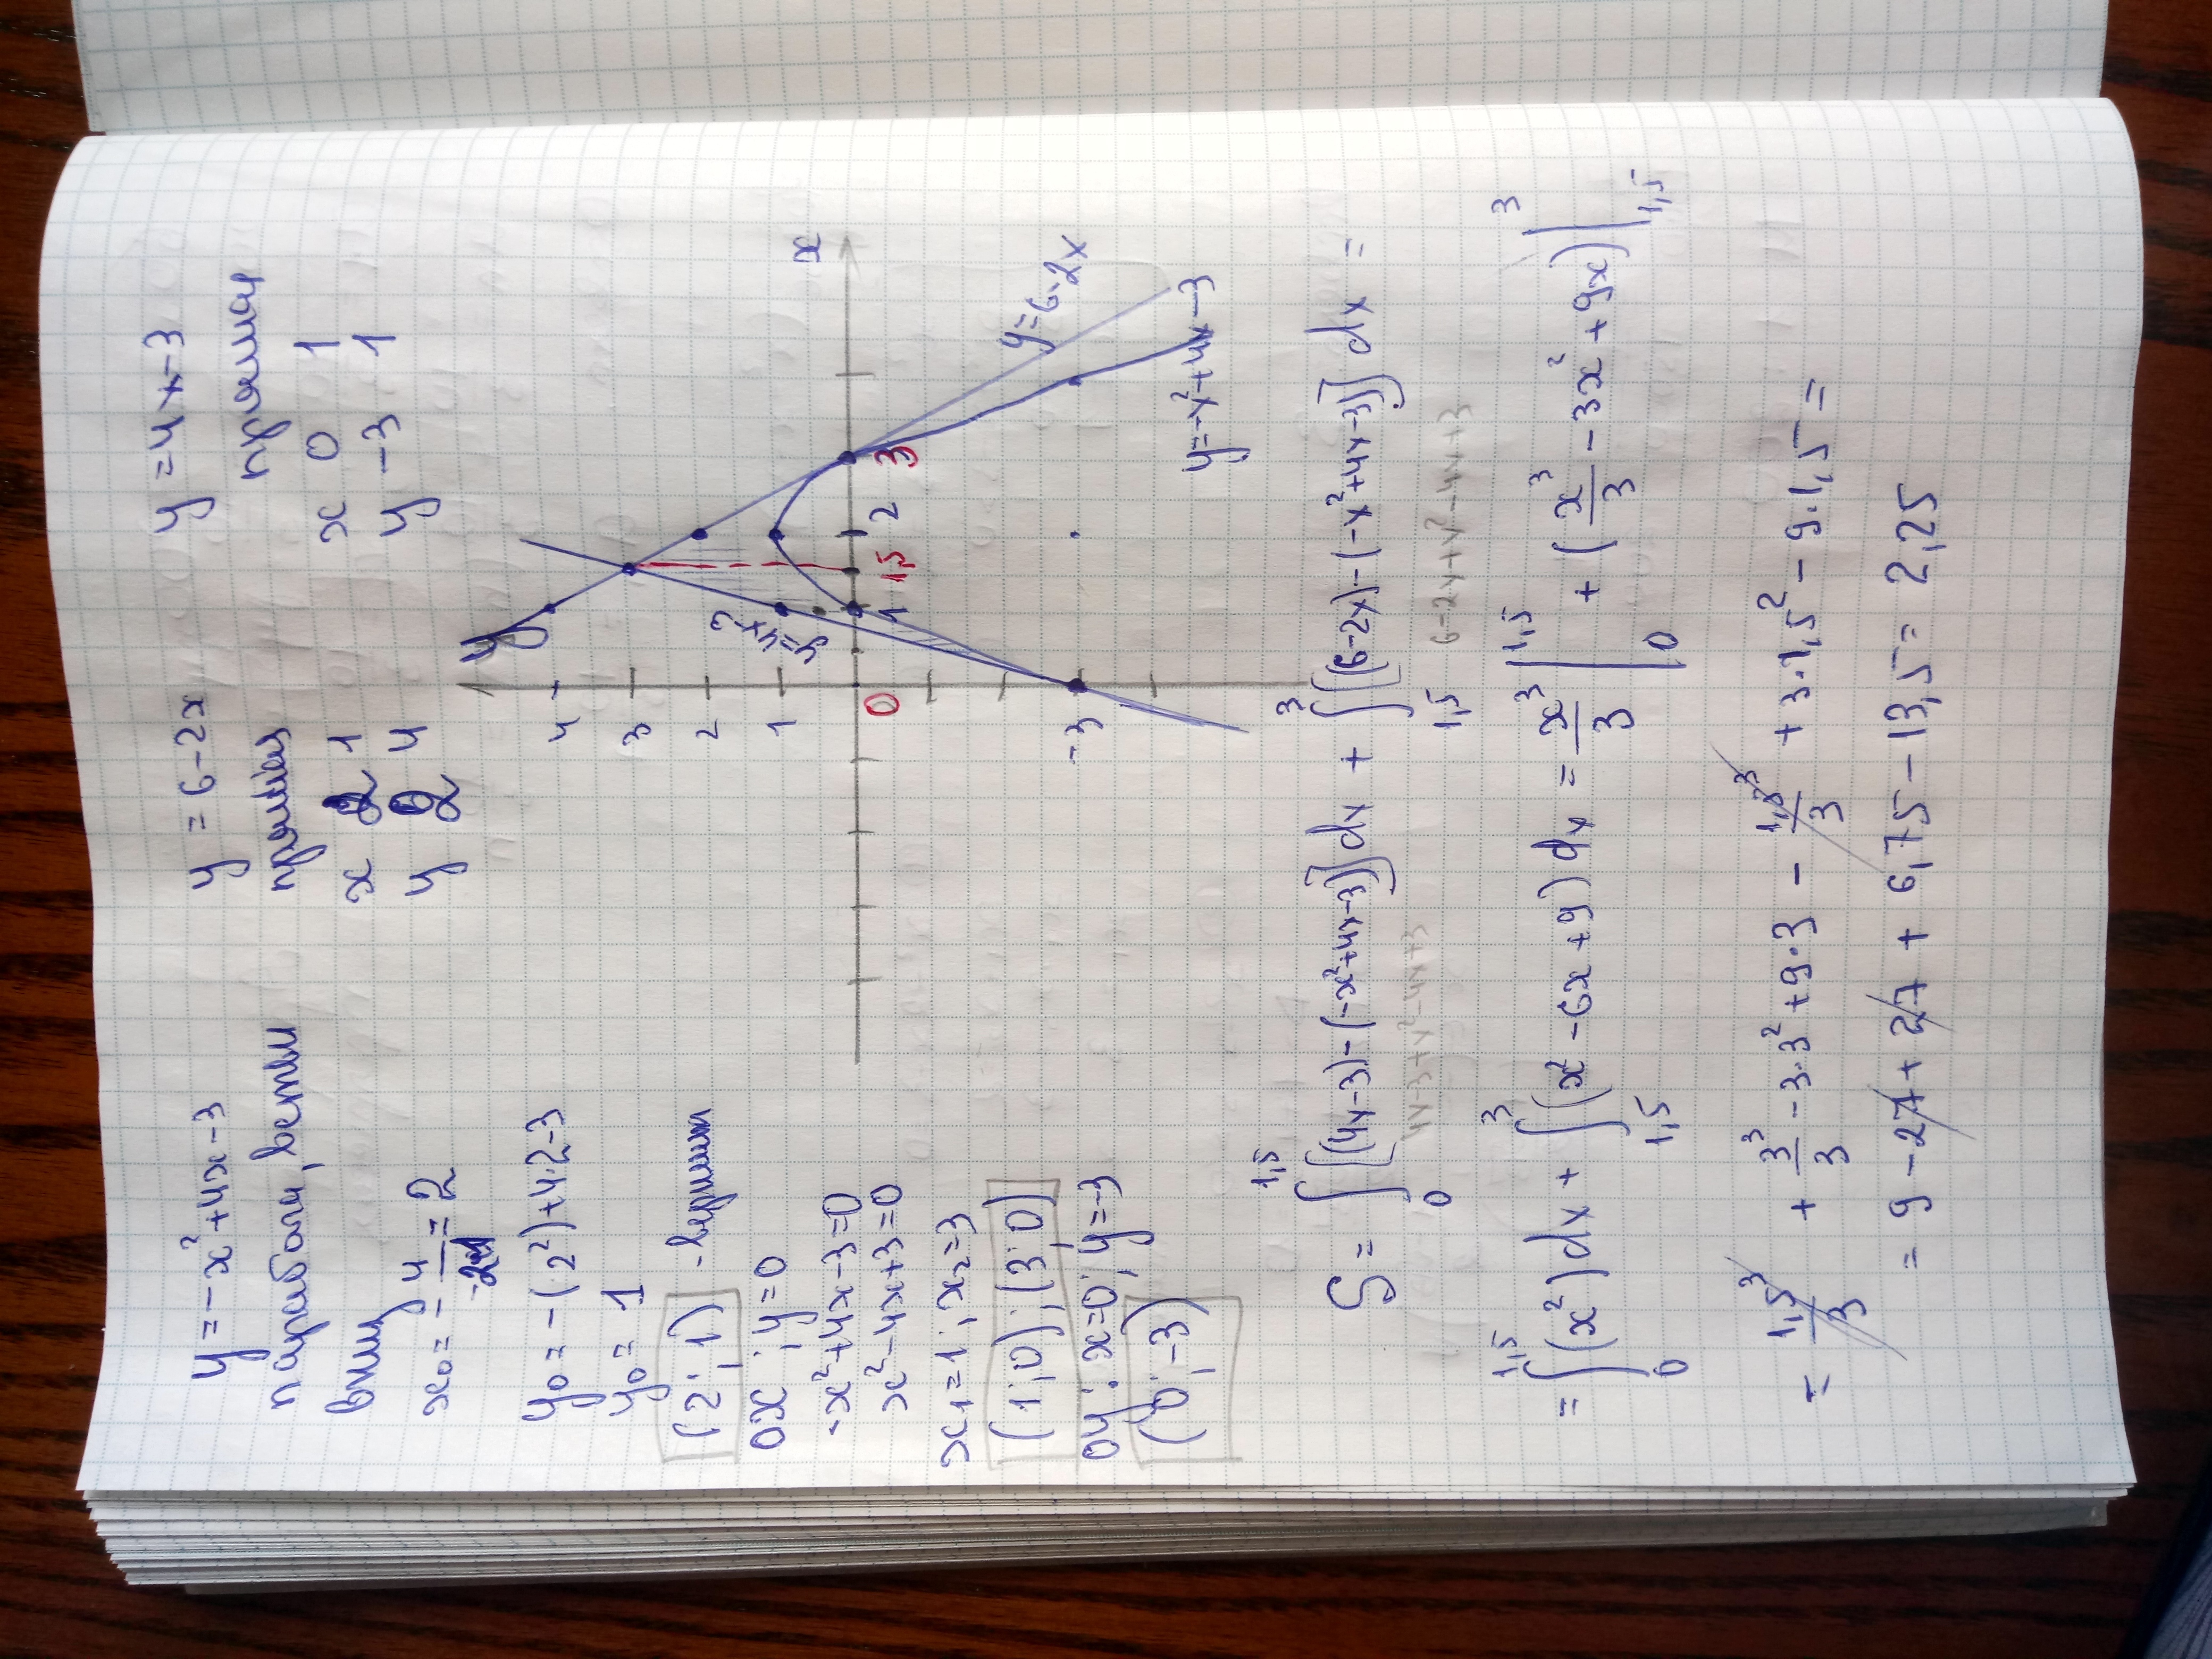 y = -x² + 4x - 3
парабола, ветви
вниз
x₀ = - 4/-2 = 2
y₀ = -(2²) + 4·2 - 3
y₀ = 1
(2; 1) - вершина
OX: y = 0
-x² + 4x - 3 = 0
x² - 4x + 3 = 0
x₁ = 1; x₂ = 3
(1; 0); (3; 0)
OY: x = 0; y = -3
(0; -3)
y = 6 - 2x
прямая
x 2 1
y 2 4
y = 4x - 3
прямая
x 0 1
y -3 1
y
4
3
2
1
0
-3
1
1,5
2
3
x
y = 4x-3
y = 6-2x
y = -x² + 4x - 3
S = ∫₀^1,5 [(4x-3) - (-x²+4x-3)] dx + ∫_1,5^3 [(6-2x) - (-x²+4x-3)] dx =
4x-3+x²-4x+3
6-2x+x²-4x+3
= ∫₀^1,5 (x²) dx + ∫_1,5^3 (x² - 6x + 9) dx = x³/3 |₀^1,5 + (x³/3 - 3x² + 9x) |_1,5^3
= 1,5³/3 + 3³/3 - 3·3² + 9·3 - 1,5³/3 + 3·1,5² - 9·1,5 =
= 9 - 27 + 27 + 6,75 - 13,5 = 2,25